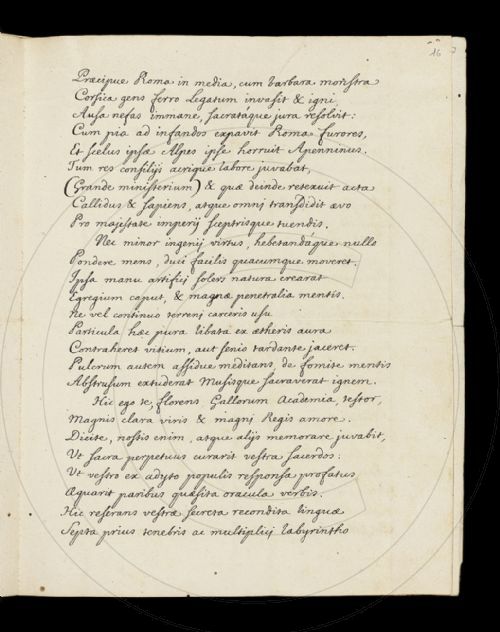 16
Præcipue Roma in media, cum barbara monstra
Corsica gens ferro Legatum invasit & igni,
Ausa nefas immane, sacratáque jura resolvit:
Cum pia ad infandos expavit Roma furores,
Et scelus ipsæ Alpes ipse horruit Apenninus.
Tum res consilijs acrique labore juvabat,
(Grande ministerium) & quæ deinde retexuit acta
Callidus & sapiens, atque omnj transdidit ævo
Pro majestate imperij sceptrisque tuendis.
Nec minor ingenij virtus, hebetandáque nullo
Pondere mens, duci facilis quacumque moveret.
Ipsa manu artificj solers natura crearat
Egregium caput, & magnæ penetralia mentis.
Ne vel continuo terrenj carceris usu
Particula hæc pura libata ex ætheris aura
Contraheret vitium, aut senio tardante jaceret.
Pulcrum autem assidue meditans, de fomite mentis
Abstrusum extuderat Musisque sacraverat ignem.
Hic ego te, florens Gallorum Academia, testor,
Magnis clara viris & magnj Regis amore:
Dicite, nostis enim, atque alijs memorare juvabit,
Ut sacra perpetuus curarit vestra sacerdos:
Ut vestro ex adyto populis responsa profatus
Æquarit paribus quæsita oracula verbis:
Hic reserans vestræ secreta recondita linguæ
Septa prius tenebris ac multiplicj labyrintho